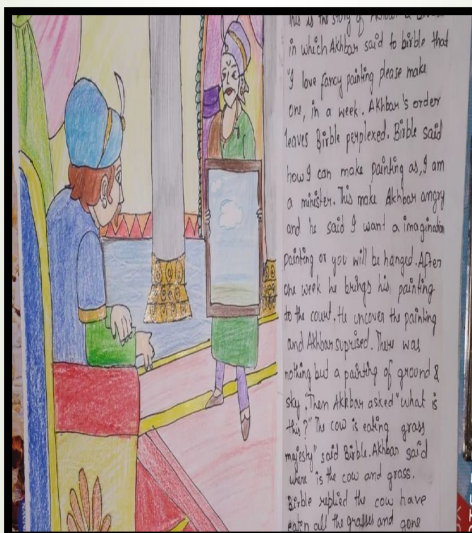 This is the story of Akhbar &
in which Akhbar said to birble that
"I love fancy painting please make
one, in a week. Akhbar's order
leaves Birble perplexed. Birble said
how I can make painting as, I am
a minister. This make Akhbar angry
and he said I want a imagination
painting or you will be hanged. After
one week he brings his painting
to the court. He uncover the painting
and Akhbar suprised. There was
nothing but a painting of ground &
sky. Then Akhbar asked "what is
this?" "The cow is eating grass
majesty" said Birble. Akhbar said
where is the cow and grass.
Birble replied the cow have
eaten all the grasses and gone